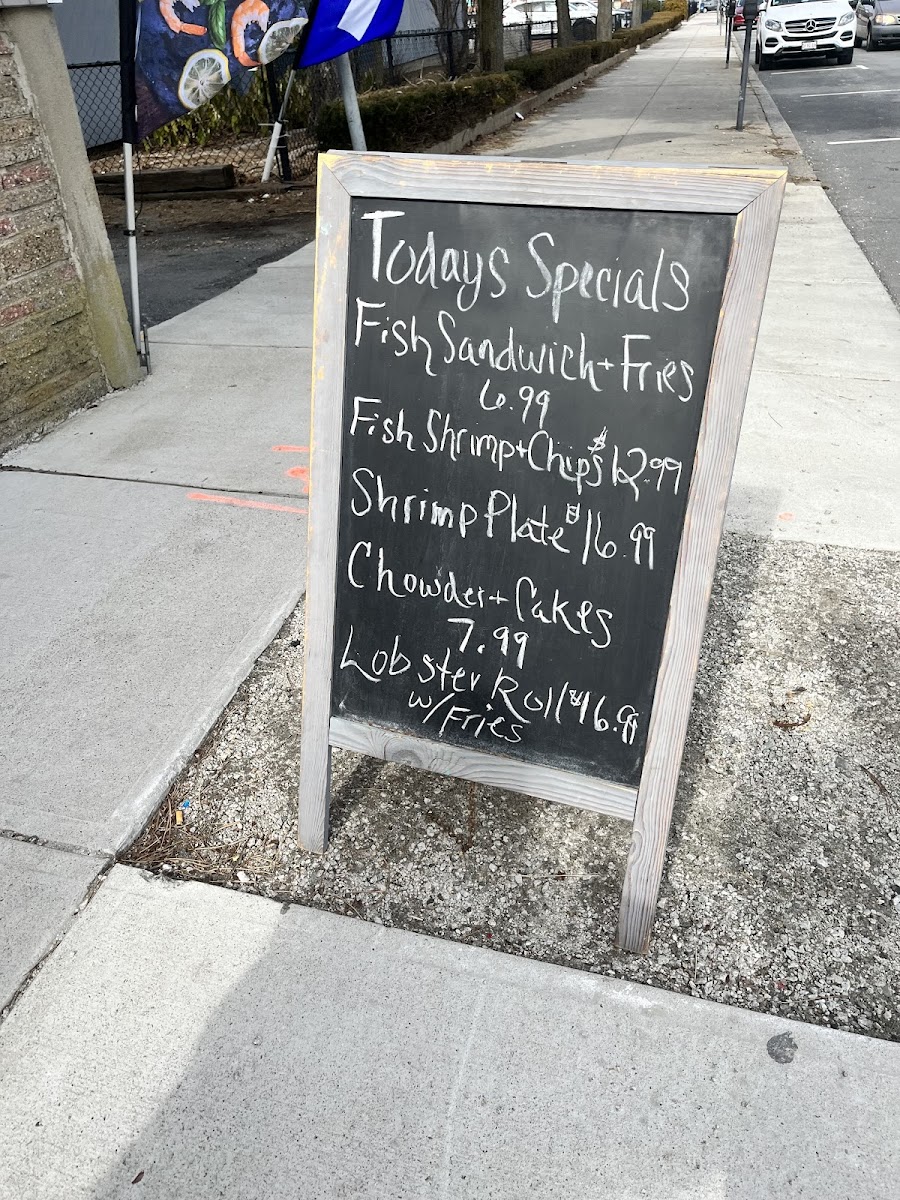 Todays Specials
Fish Sandwich + Fries
6.99
Fish Shrimp + Chips $12.99
Shrimp Plate $16.99
Chowder + Cakes
7.99
Lobster Roll $16.99
w/Fries